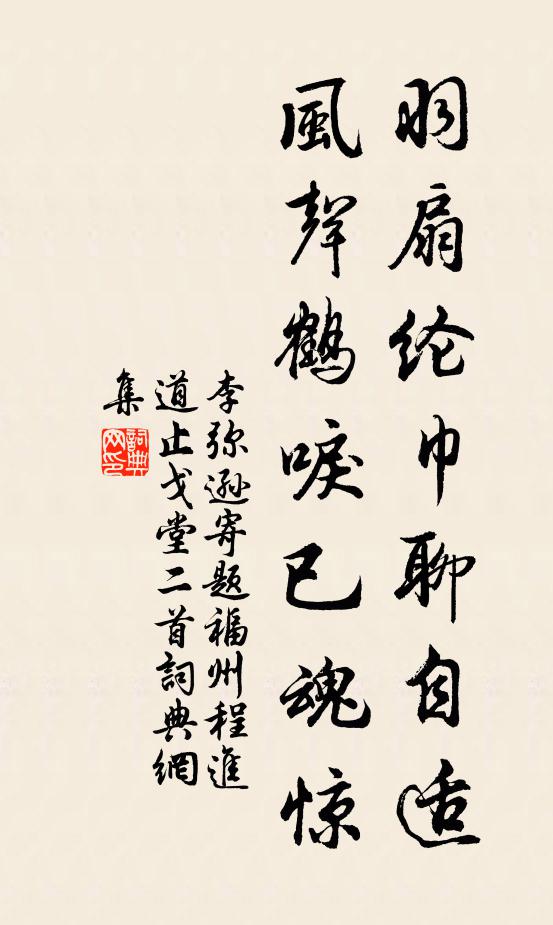 羽扇纶巾聊自适
風聲鶴唳已魂惊
李弥遜寄题福州程進
道止戈堂二首詞典網
集
詞典
网印